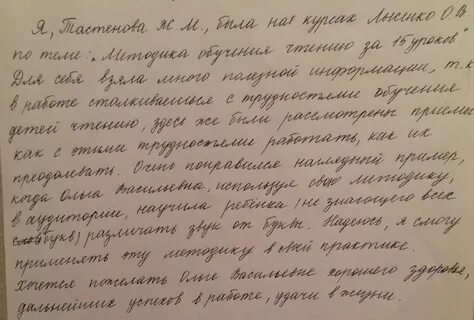 Я, Тастенова Ж М., была на курсах Лысенко О.В
по теме: „Методика обучения чтению за 15 уроков"
Для себя взяла много полезной информации, т.к
в работе сталкиваешься с трудностями обучения
детей чтению, здесь же были рассмотрены приемы
как с этими трудностями работать, как их
преодолевать. Очень понравился наглядный пример,
когда Ольга Васильевна, используя свою методику,
в аудитории, научила ребёнка (не знающего всех
букв) различать звук от буквы. Надеюсь, я смогу
применять эту методику в свой практике.
Хочется пожелать Ольге Васильевне хорошего здоровье,
дальнейших успехов в работе, удачи в жизни.